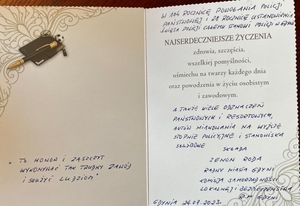 W 104 ROCZNICĘ POWOŁANIA POLICJI
PAŃSTWOWEJ I 28 ROCZNICĘ USTANOWIENIA
ŚWIĘTA POLICJI CAŁEMU STANOWI POLICJI W GDYNI
NAJSERDECZNIEJSZE ŻYCZENIA
zdrowia, szczęścia,
wszelkiej pomyślności,
uśmiechu na twarzy każdego dnia
oraz powodzenia w życiu osobistym
i zawodowym.
A TAKŻE WIELE ODZNACZEŃ
PAŃSTWOWYCH I RESORTOWYCH,
AKTÓW MIANOWANIA NA WYŻSZE
STOPNIE POLICYJNE I STANOWISKA
SŁUŻBOWE
SKŁADA
ZENON RODA
RADNY MIASTA GDYNI
KOMISJA SAMORZĄDNOŚCI
LOKALNEJ I BEZPIECZEŃSTWA
R.M. GDYNI
GDYNIA 24.07.2023
"TO HONOR I ZASZCZYT
WYKONYWAĆ TAK TRUDNY ZAWÓD
I SŁUŻYĆ LUDZIOM"